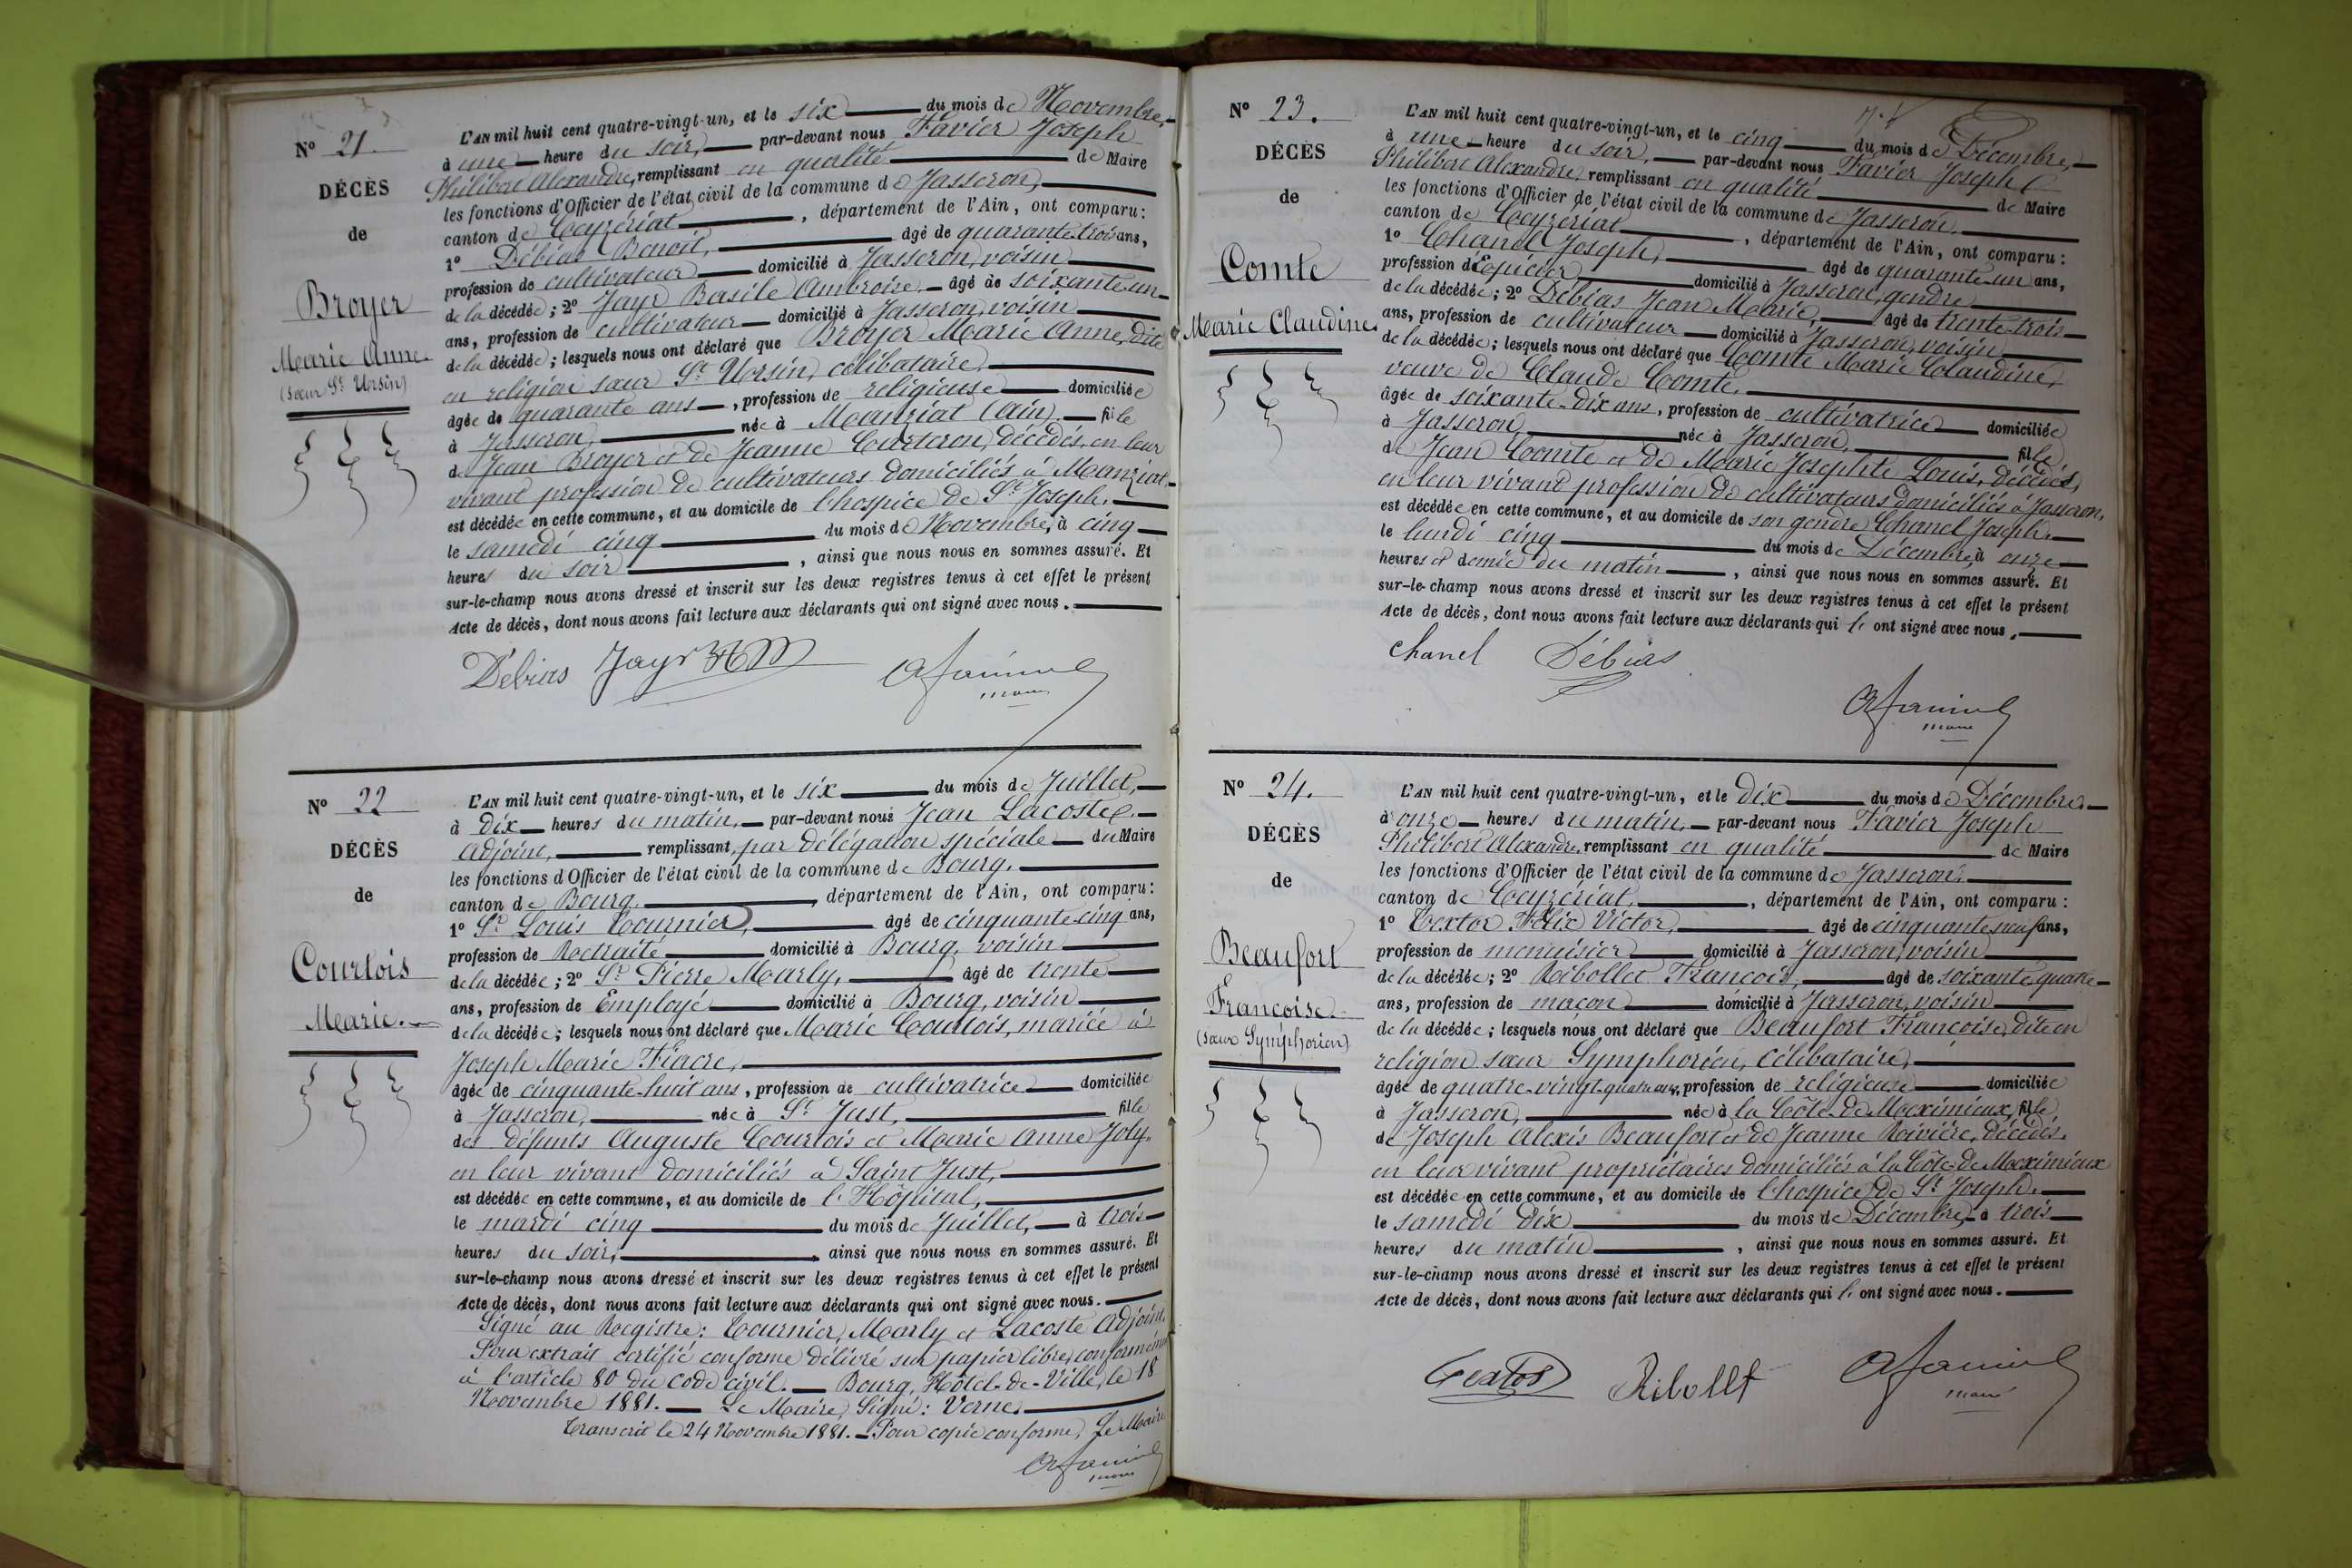 Nº 21.
DÉCÈS
de
Broyer
Marie Anne
(Sœur St Ursin)
L'AN mil huit cent quatre-vingt-un, et le six du mois de Novembre,
à une heure du soir, par-devant nous Favier Joseph
Philibert Alexandre, remplissant en qualité de Maire
les fonctions d'Officier de l'état civil de la commune de Jasseron,
canton de Ceyzériat, département de l'Ain, ont comparu:
1º Débias Benoit, âgé de quarante-trois ans,
profession de cultivateur domicilié à Jasseron, voisin
de la décédée; 2º Jayr Basile Ambroise, âgé de soixante-un
ans, profession de cultivateur domicilié à Jasseron, voisin
de la décédée; lesquels nous ont déclaré que Broyer Marie Anne, dite
en religion sœur St Ursin, célibataire,
âgée de quarante ans, profession de religieuse domiciliée
à Jasseron, née à Manziat (Ain), fille
de Jean Broyer et de Jeanne Curteron, décédés, en leur
vivant profession de cultivateurs domiciliés à Manziat
est décédée en cette commune, et au domicile de l'hospice de St Joseph,
le samedi cinq du mois de Novembre, à cinq
heures du soir, ainsi que nous nous en sommes assuré. Et
sur-le-champ nous avons dressé et inscrit sur les deux registres tenus à cet effet le présent
Acte de décès, dont nous avons fait lecture aux déclarants qui ont signé avec nous.
Débias Jayr
maire
Nº 22
DÉCÈS
de
Courtois
Marie.
L'AN mil huit cent quatre-vingt-un, et le six du mois de Juillet,
à dix heures du matin, par-devant nous Jean Lacoste
adjoint, remplissant, par délégation spéciale du Maire
les fonctions d'Officier de l'état civil de la commune de Bourg,
canton de Bourg, département de l'Ain, ont comparu:
1º Sr Louis Tournier, âgé de cinquante-cinq ans,
profession de Retraité domicilié à Bourg, voisin
de la décédée; 2º Sr Pierre Marly, âgé de trente
ans, profession de Employé domicilié à Bourg, voisin
de la décédée; lesquels nous ont déclaré que Marie Courtois, mariée à
Joseph Marie Fiacre,
âgée de cinquante-huit ans, profession de cultivatrice domiciliée
à Jasseron, née à St Just, fille
des défunts Auguste Courtois et Marie Anne Joly,
en leur vivant domiciliés à Saint Just,
est décédée en cette commune, et au domicile de l'Hôpital,
le mardi cinq du mois de Juillet, à trois
heures du soir, ainsi que nous nous en sommes assuré. Et
sur-le-champ nous avons dressé et inscrit sur les deux registres tenus à cet effet le présent
Acte de décès, dont nous avons fait lecture aux déclarants qui ont signé avec nous.
Signé au Registre: Tournier, Marly et Lacoste adjoint.
Pour extrait certifié conforme délivré sur papier libre, conformément
à l'article 80 du Code civil. Bourg, Hôtel-de-Ville, le 18
Novembre 1881. Le Maire, Signé: Verne.
Transcrit le 24 Novembre 1881. Pour copie conforme, Le Maire
maire
Nº 23.
DÉCÈS
de
Comte
Marie Claudine
L'AN mil huit cent quatre-vingt-un, et le cinq du mois de Décembre,
à une heure du soir, par-devant nous Favier Joseph
Philibert Alexandre, remplissant en qualité de Maire
les fonctions d'Officier de l'état civil de la commune de Jasseron,
canton de Ceyzériat, département de l'Ain, ont comparu:
1º Chanel Joseph, âgé de quarante-un ans,
profession d'Epicier domicilié à Jasseron, gendre
de la décédée; 2º Débias Jean Marie, âgé de trente-trois
ans, profession de cultivateur domicilié à Jasseron, voisin
de la décédée; lesquels nous ont déclaré que Comte Marie Claudine,
veuve de Claude Comte,
âgée de soixante-dix ans, profession de cultivatrice domiciliée
à Jasseron, née à Jasseron, fille
de Jean Comte et de Marie Josephte Louis, décédés,
en leur vivant profession de cultivateurs domiciliés à Jasseron,
est décédée en cette commune, et au domicile de son gendre Chanel Joseph,
le lundi cinq du mois de Décembre, à onze
heures et demie du matin, ainsi que nous nous en sommes assuré. Et
sur-le-champ nous avons dressé et inscrit sur les deux registres tenus à cet effet le présent
Acte de décès, dont nous avons fait lecture aux déclarants qui l' ont signé avec nous,
Chanel Débias
maire
Nº 24.
DÉCÈS
de
Beaufort
Françoise
(sœur Symphorien)
L'AN mil huit cent quatre-vingt-un, et le dix du mois de Décembre,
à onze heures du matin, par-devant nous Favier Joseph
Philibert Alexandre, remplissant en qualité de Maire
les fonctions d'Officier de l'état civil de la commune de Jasseron,
canton de Ceyzériat, département de l'Ain, ont comparu:
1º Textor Félix Victor, âgé de cinquante neuf ans,
profession de menuisier domicilié à Jasseron, voisin
de la décédée; 2º Ribollet François, âgé de soixante quatre
ans, profession de maçon domicilié à Jasseron, voisin
de la décédée; lesquels nous ont déclaré que Beaufort Françoise, dite en
religion sœur Symphorien, Célibataire,
âgée de quatre-vingt-quatre ans, profession de religieuse domiciliée
à Jasseron, née à la Côte-de-Meximieux, fille
de Joseph Alexis Beaufort et de Jeanne Rivière, décédés,
en leur vivant propriétaires domiciliés à la Côte-de-Meximieux
est décédée en cette commune, et au domicile de l'hospice de St Joseph,
le samedi dix du mois de Décembre, à trois
heures du matin, ainsi que nous nous en sommes assuré. Et
sur-le-champ nous avons dressé et inscrit sur les deux registres tenus à cet effet le présent
Acte de décès, dont nous avons fait lecture aux déclarants qui l' ont signé avec nous.
Textor Ribollet
maire